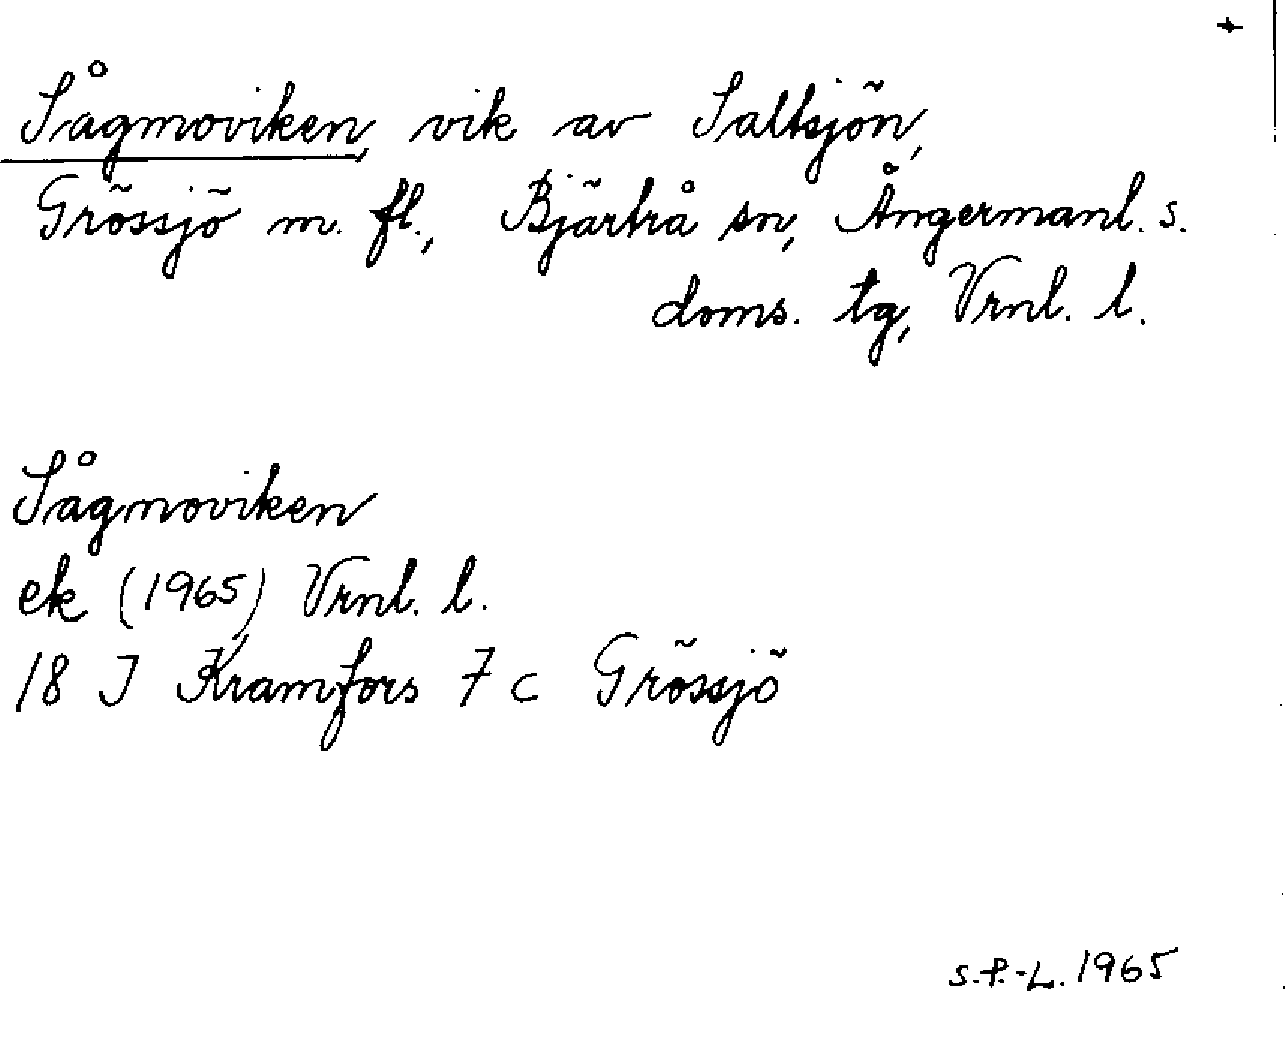 +
Sågmoviken, vik av Saltsjön,
Grössjö m. fl., Bjärtrå sn, Ångermanl. s.
doms. tg, Vrnl. l.
Sågmoviken
ek (1965) Vrnl. l.
18 J Kramfors 7 c Grössjö
S.P.-L. 1965